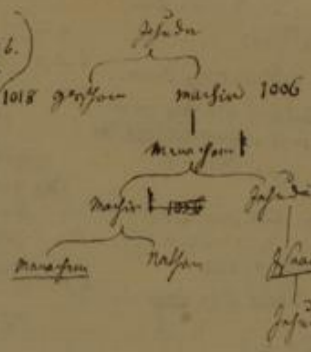 b.
Jehuda
1018 Gerschom Machir 1006
Menachem
Machir 1056 Jehuda
Menachem Nathan Isaac
Jehuda